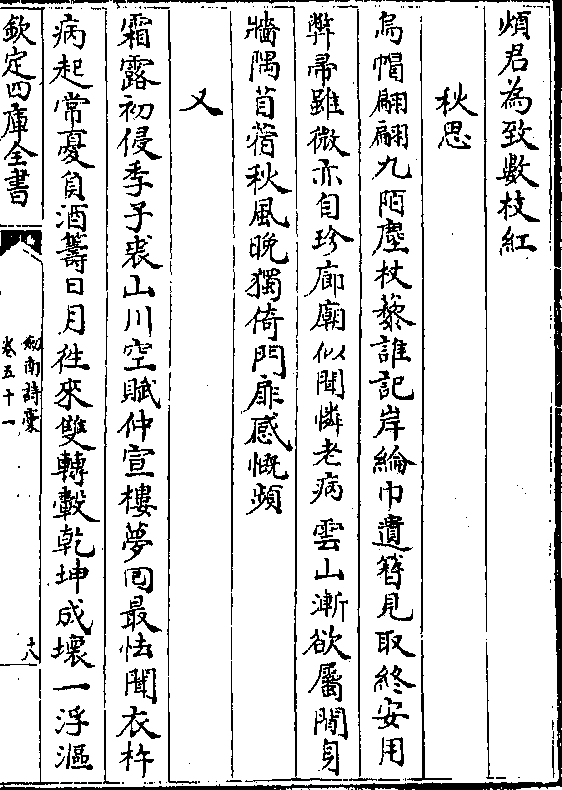 煩君為致數枝紅
秋思
烏帽翩翩九陌塵杖藜誰記岸綸巾遺簪見取終安用
弊帚雖微亦自珍廊廟似聞憐老病雲山漸欲屬閒身
牆隅苜蓿秋風晚獨倚門扉感慨頻
又
霜露初侵季子裘山川空賦仲宣樓夢回最怯聞衣杵
病起常憂負酒籌日月徃來雙轉轂乾坤成壊一浮漚
欽定四庫全書
劔南詩稾
卷五十一
十八